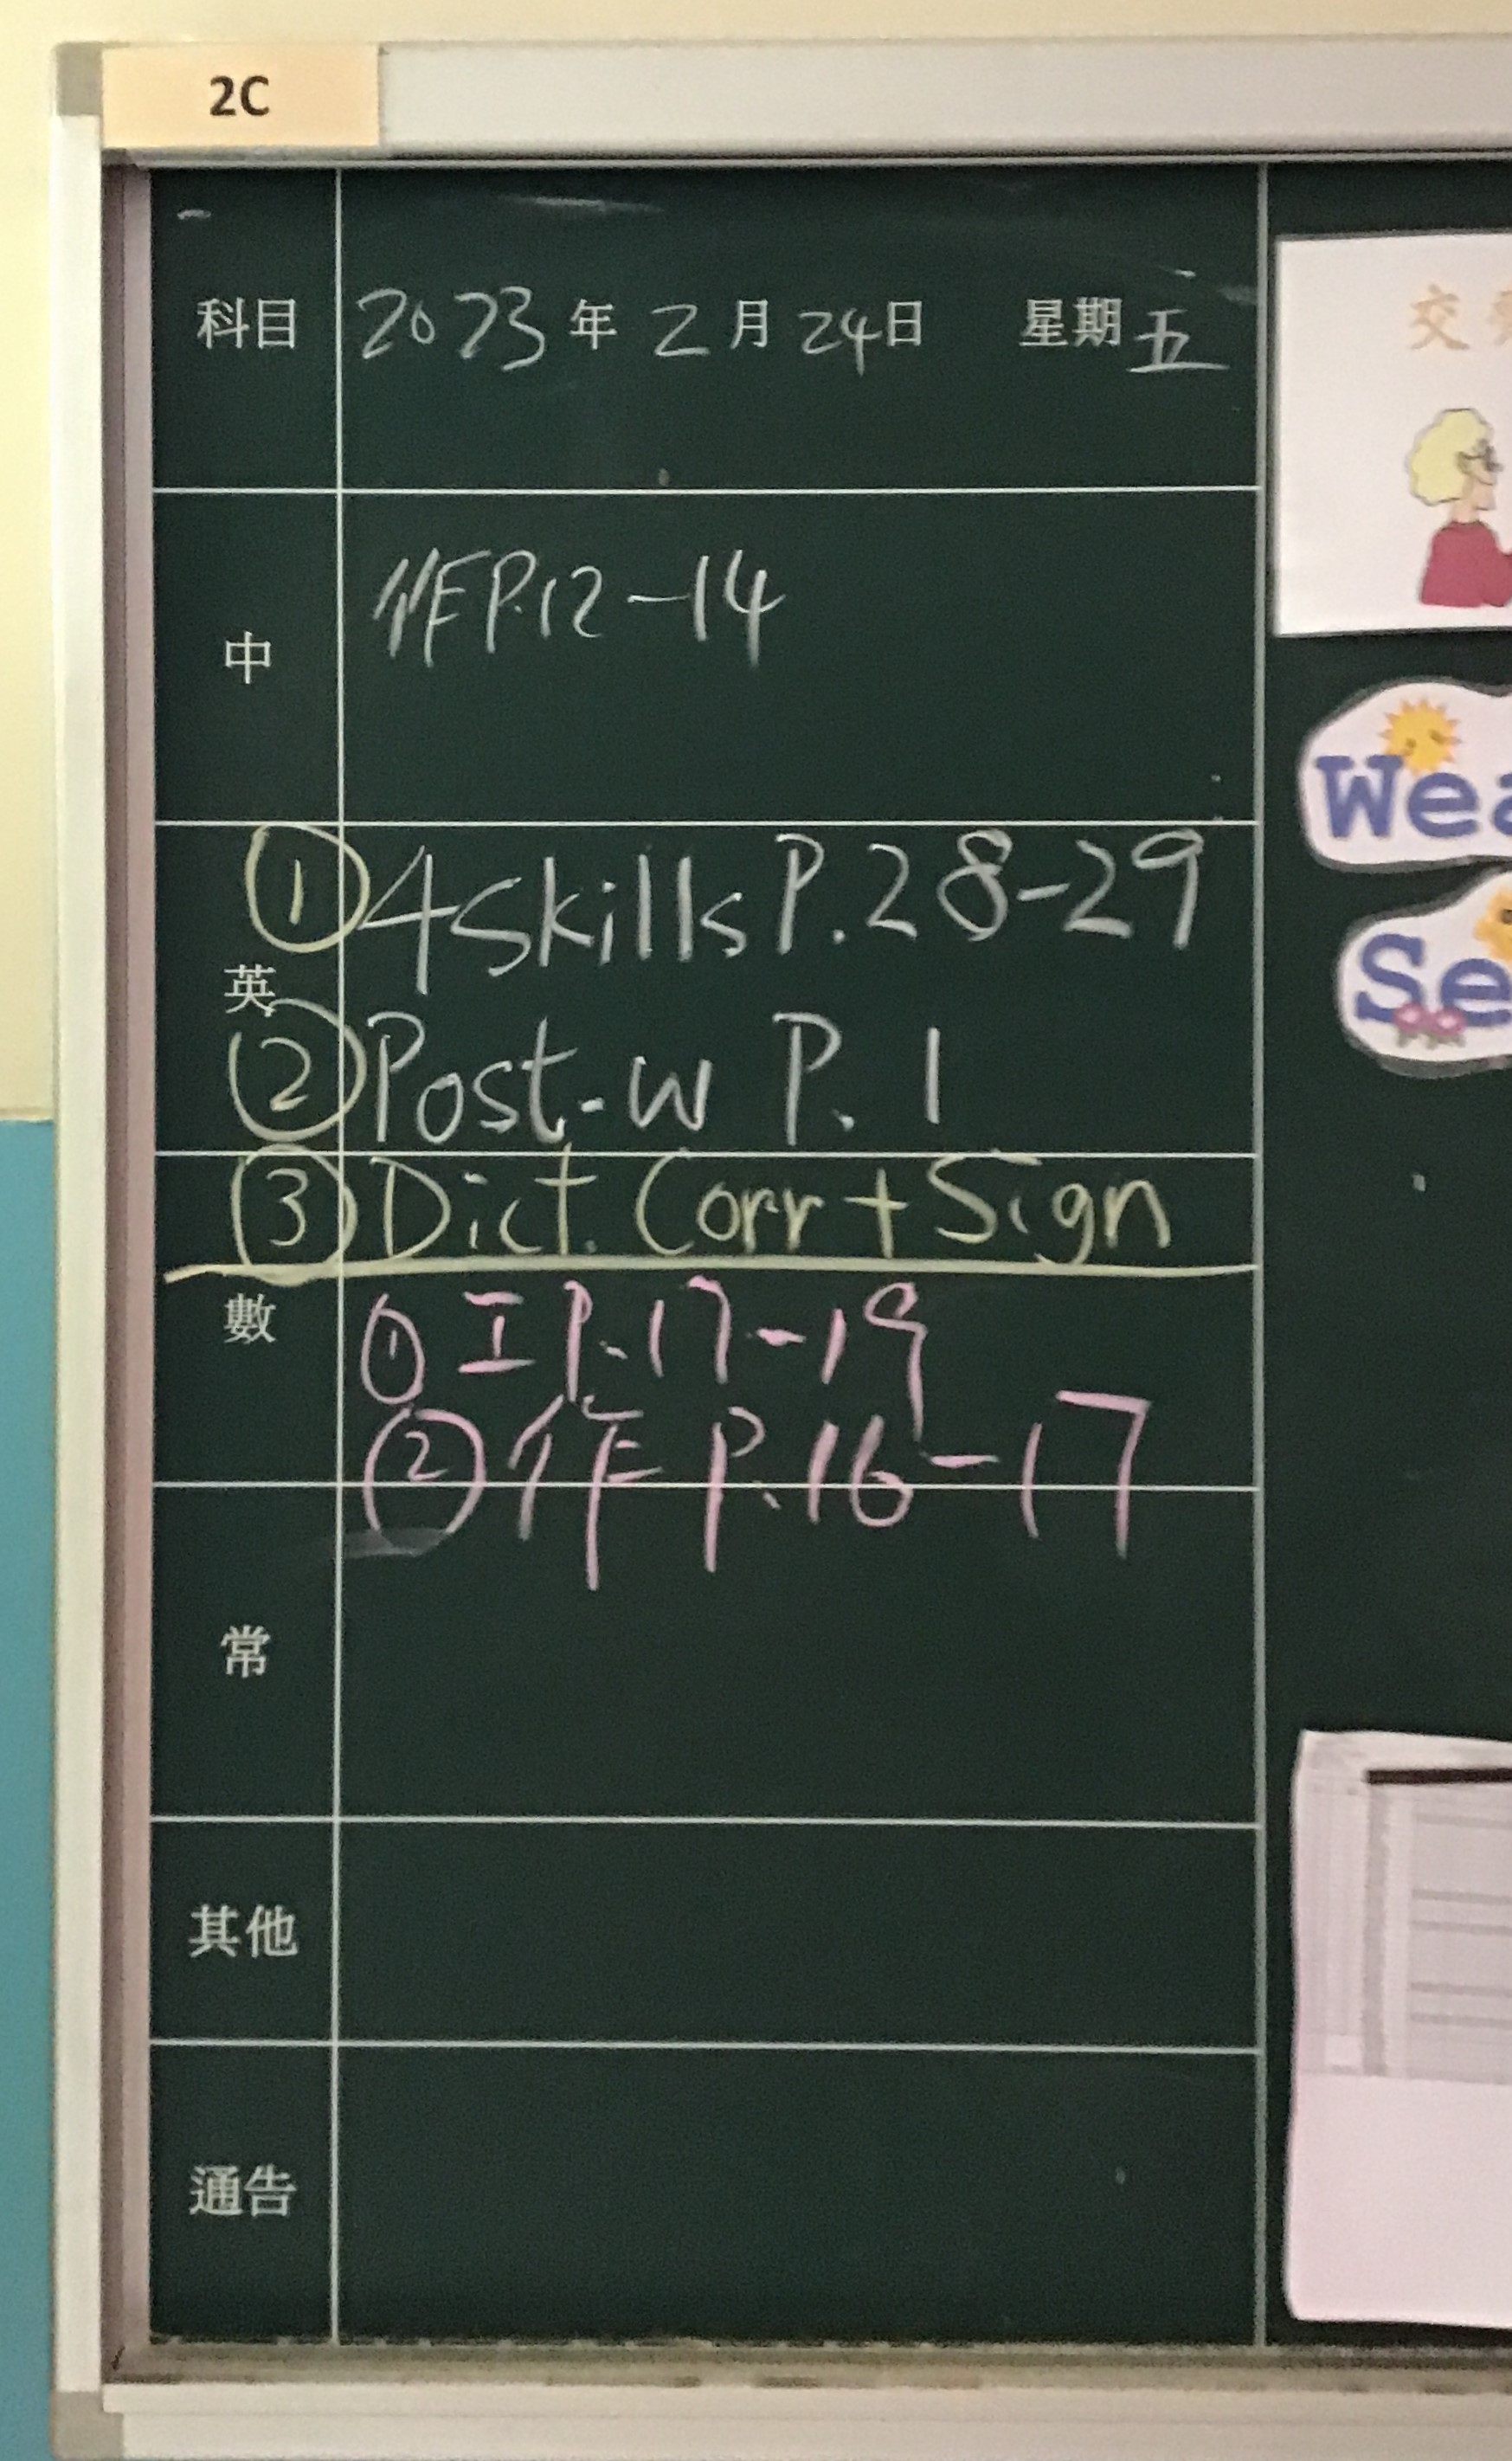 2C
科目 2023年2月24日 星期五
中 作P.12-14
① 4 Skills P.28-29
英
② Post-W P.1
③ Dict. Corr + Sign
數 ① 工P.17-19
② 作 P.16-17
常
其他
通告
交
Wea
Se